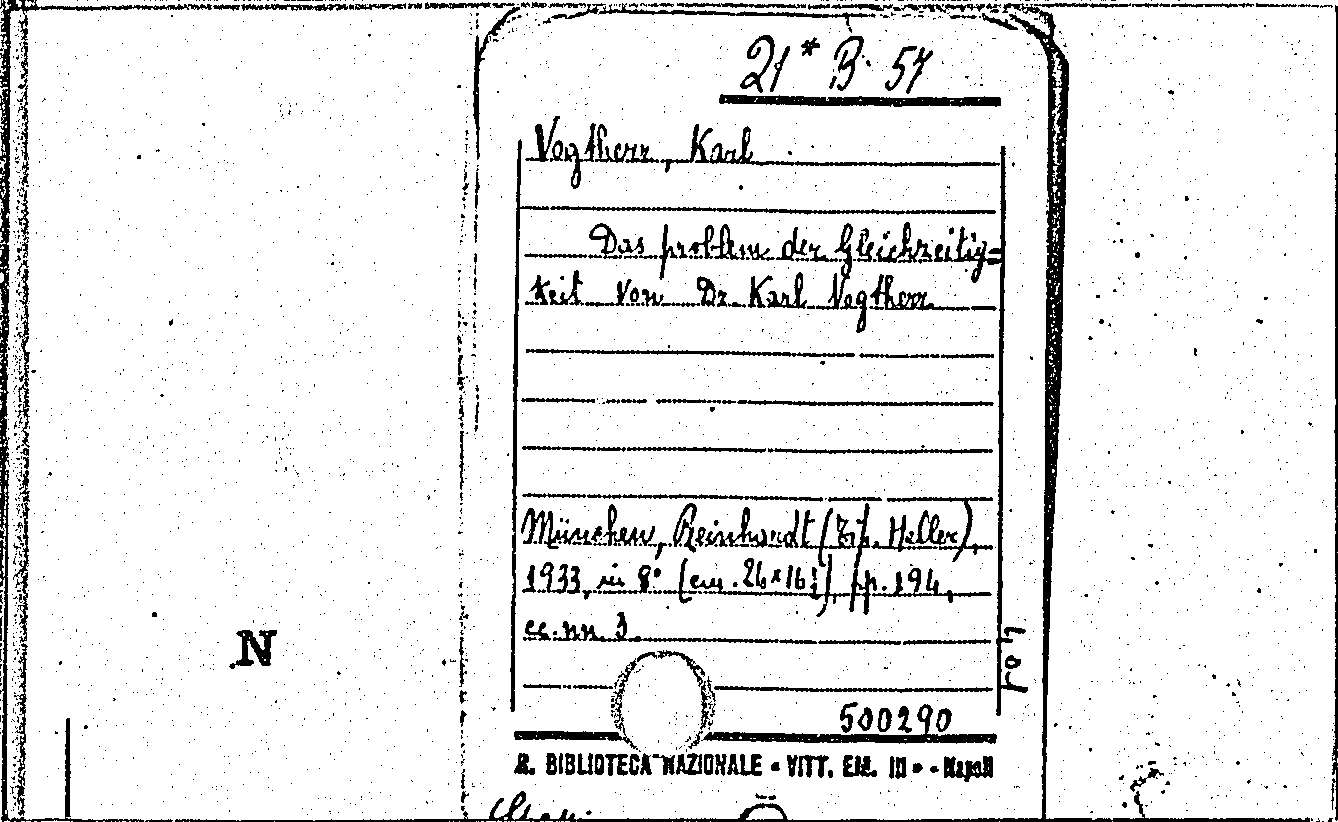 21* B 57
Vogtherr, Karl
Das problem der Gleichzeitig=
keit von Dr. Karl Vogtherr
München, Reinhardt (Tip. Heller),
1933, in 8° (cm. 26×16½), pp. 194,
cc. nn. 3.
N
500290
R. BIBLIOTECA NAZIONALE - VITT. EM. III - - Napoli